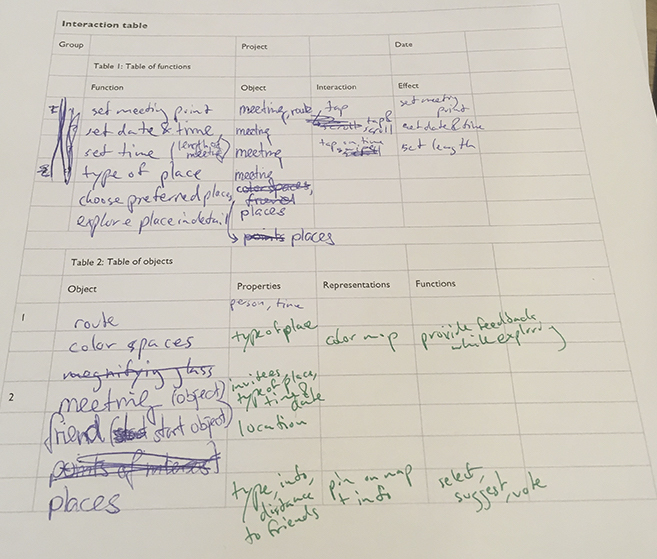 Interaction table
Group Project Date
Table 1: Table of functions
Function Object Interaction Effect
set meeting point meeting, route, tap set meeting point
set date & time, meeting tap & scroll set date & time
set time (length of meeting) meeting tap on time set length
type of place meeting
choose preferred place, color spaces, friend
explore place in detail places
points places
Table 2: Table of objects
Object Properties Representations Functions
1 route person, time
color spaces type of place color map provide feedback while exploring
magnifying glass
2 meeting (object) invitees, type of place, time & date
friend (start object) location
points of interest
places type, info, distance to friends pin on map + info select, suggest, vote